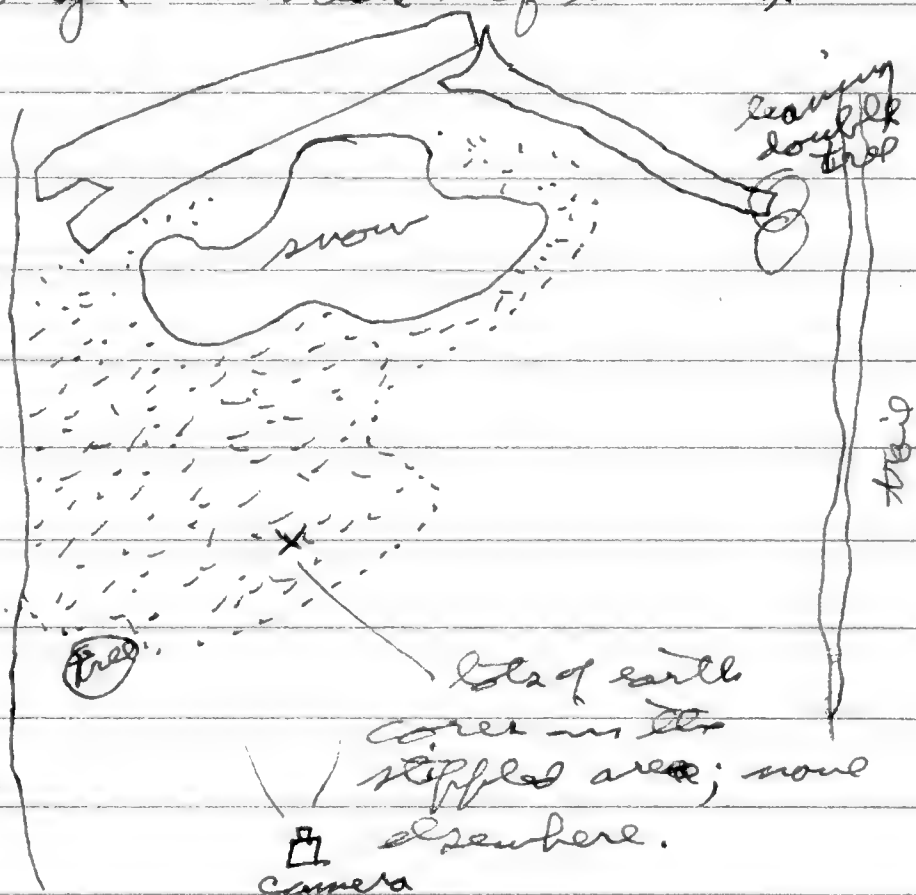 leaning
double
tree
snow
trail
tree
lots of earth
cores in the
stippled area; none
elsewhere.
camera